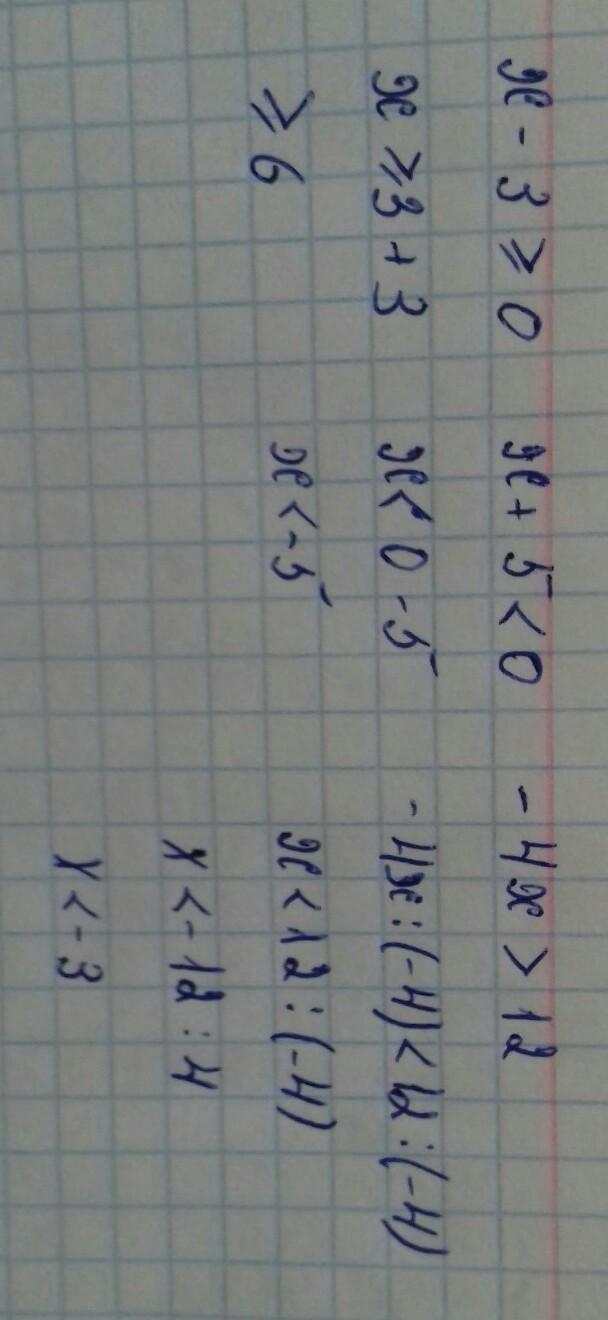 x - 3 ⩾ 0
x ⩾ 3 + 3
⩾ 6
x + 5 < 0
x < 0 - 5
x < - 5
- 4x > 12
- 4x : (-4) < 12 : (-4)
x < 12 : (-4)
x < - 12 : 4
x < - 3